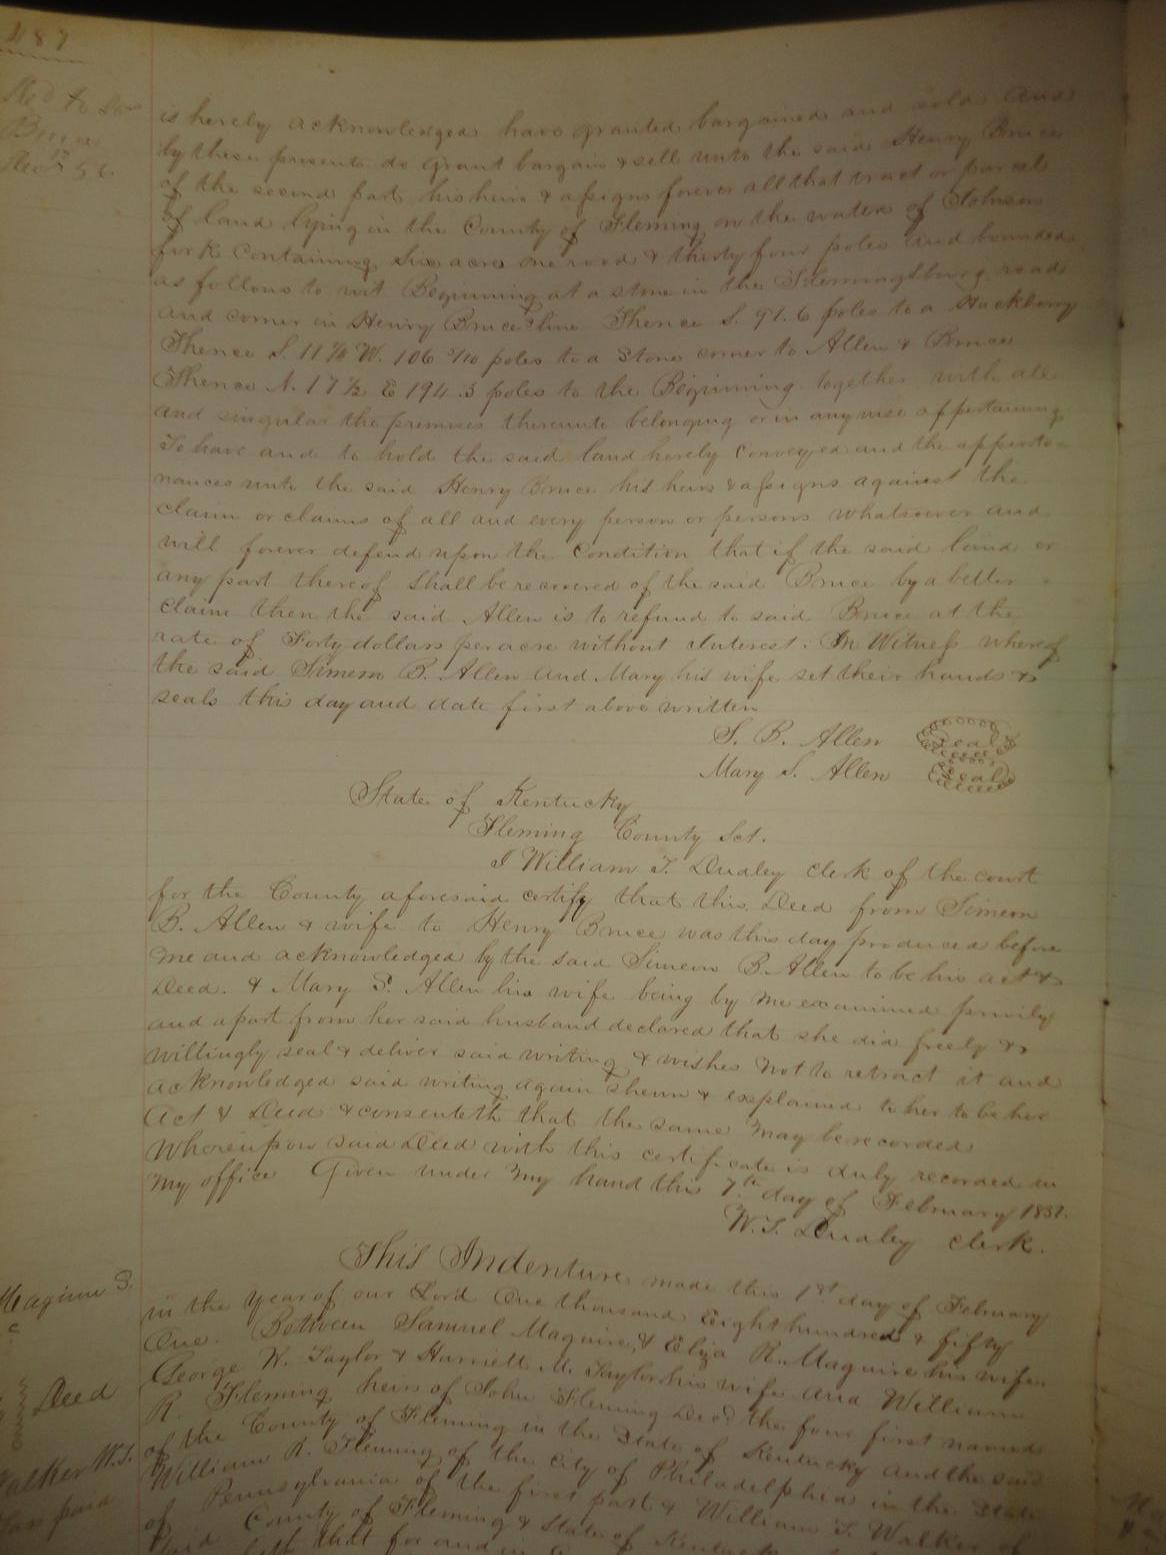 187
is hereby acknowledged have granted bargained and sold and
by these presents do grant bargain & sell unto the said Henry Bruce
of the second part his heirs & assigns forever all that tract or parcel
of land lying in the County of Fleming on the waters of Johnson
fork Containing Six acres one rood & thirty four poles and bounded
as follows to wit Beginning at a stone in the Flemingsburg road
and corner in Henry Bruces line Thence S. 91.6 poles to a Hackberry
Thence S. 11 W. 106 poles to a Stone corner to Allen & Bruce
Thence N. 17½ E 194.3 poles to the Beginning together with all
and singular the premises thereunto belonging or in any wise appertaining
To have and to hold the said land hereby Conveyed and the appurte-
nances unto the said Henry Bruce his heirs & assigns against the
claim or claims of all and every person or persons whatsoever and
will forever defend upon the Condition that if the said land or
any part thereof Shall be recovered of the said Bruce by a better
claim then the said Allen is to refund to said Bruce at the
rate of Forty dollars per acre without Interest. In Witness whereof
the said Simeon B. Allen and Mary his wife set their hands &
seals this day and date first above written
S. B. Allen Seal
Mary S. Allen Seal
State of Kentucky
Fleming County Sct.
I William T. Dudley Clerk of the court
for the County aforesaid certify that this Deed from Simeon
B. Allen & wife to Henry Bruce was this day produced before
me and acknowledged by the said Simeon B. Allen to be his act &
Deed. & Mary S. Allen his wife being by me examined privily
and apart from her said husband declared that she did freely &
willingly seal & deliver said writing & wishes not to retract it and
acknowledged said writing again shewn & explained to her to be her
Act & Deed & consenteth that the same may be recorded
Whereupon said Deed with this certificate is duly recorded in
my office Given under my hand this 7th day of February 1851.
W. T. Dudley Clerk.
Maguire S
This Indenture made this 1st day of February
in the Year of our Lord One thousand Eight hundred & fifty
One. Between Samuel Maguire & Eliza R. Maguire his wife
George W. Taylor & Harriett M. Taylor his wife and William
Deed
R. Fleming heirs of John Fleming Decd the four first named
of the County of Fleming in the State of Kentucky and the said
Walker W.T.
William R. Fleming of the City of Philadelphia in the State
Tax paid
of Pennsylvania of the first part & William T. Walker of
said County of Fleming & State of Kentucky
that for and in